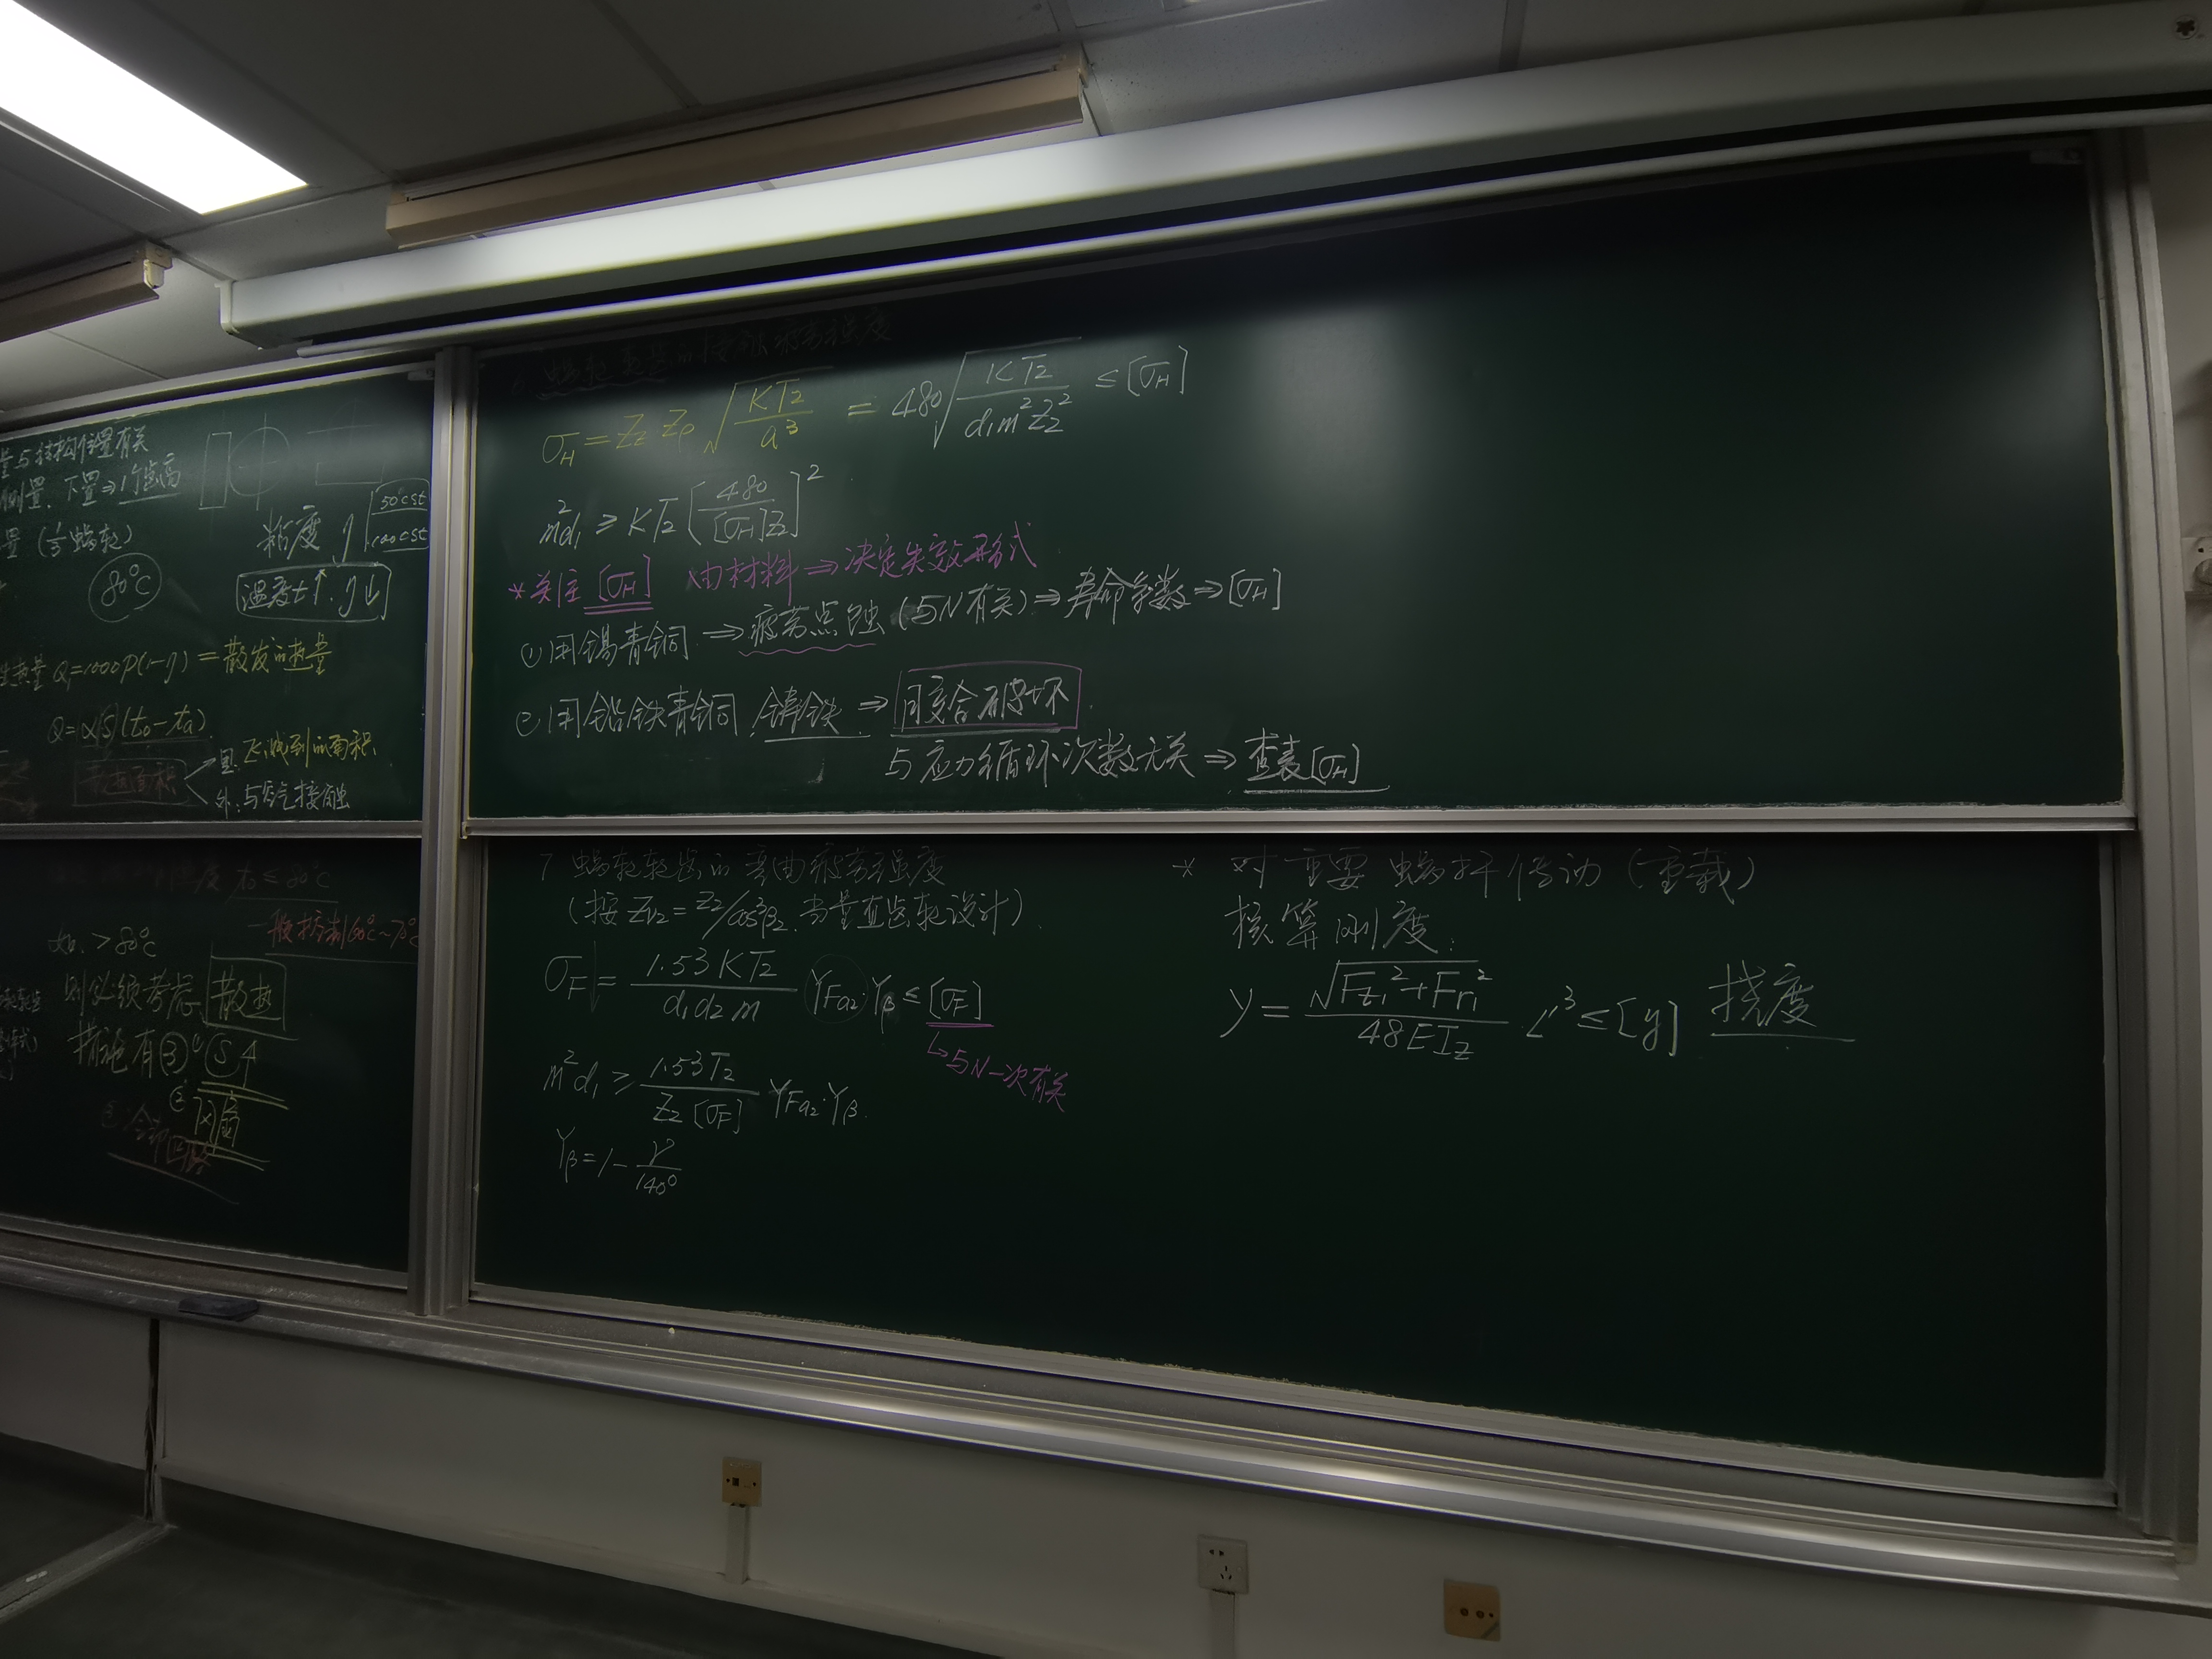 量与结构位置有关
侧置、下置⇒1个齿高
置(1/3蜗轮)
80°C
粘度 η
50°cst
100cst
温度t↑. η↓
热量Q₁=1000P(1-η)=散发的热量
Q=αS(t₀-ta)
散热面积
里:飞溅到的面积
外:与空气接触
度 t₀≤80°C
一般控制60°C~70°C
t₀>80°C
则必须考虑 散热
措施有③ ① S↑
② 风扇
③ 冷却回路
6. 蜗轮齿面的接触疲劳强度
σ_H=Z_E Z_ρ√(KT₂/a³) = 480√(KT₂/(d₁m²Z₂²)) ≤[σ_H]
m²d₁≥KT₂[480/([σ_H]Z₂)]²
*关注[σ_H] 由材料⇒决定失效形式
①用锡青铜⇒疲劳点蚀(与N有关)⇒寿命系数⇒[σ_H]
②用铝铁青铜,铸铁⇒胶合破坏.
与应力循环次数无关⇒查表[σ_H]
7 蜗轮轮齿的弯曲疲劳强度
(按Z_{V2}=Z₂/cos³β₂.当量直齿轮设计).
σ_F=1.53KT₂/(d₁d₂m) Y_{Fa2}·Y_β≤[σ_F]
↳与N一次有关
m²d₁≥1.53T₂/(Z₂[σ_F]) Y_{Fa2}·Y_β.
Y_β=1-γ/140°
* 对重要蜗杆传动(重载)
核算刚度:
y=√(F_{t1}²+F_{r1}²)/(48EI_z)·L'³≤[y] 挠度